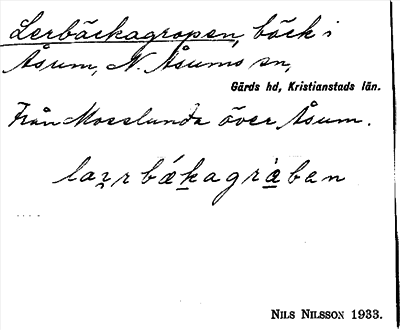 Lerbäckagropen, bäck i
Åsum, N. Åsums sn,
Gärds hd, Kristianstads län.
Från Mosslunda över Åsum.
larrbäkagräben
NILS NILSSON 1933.